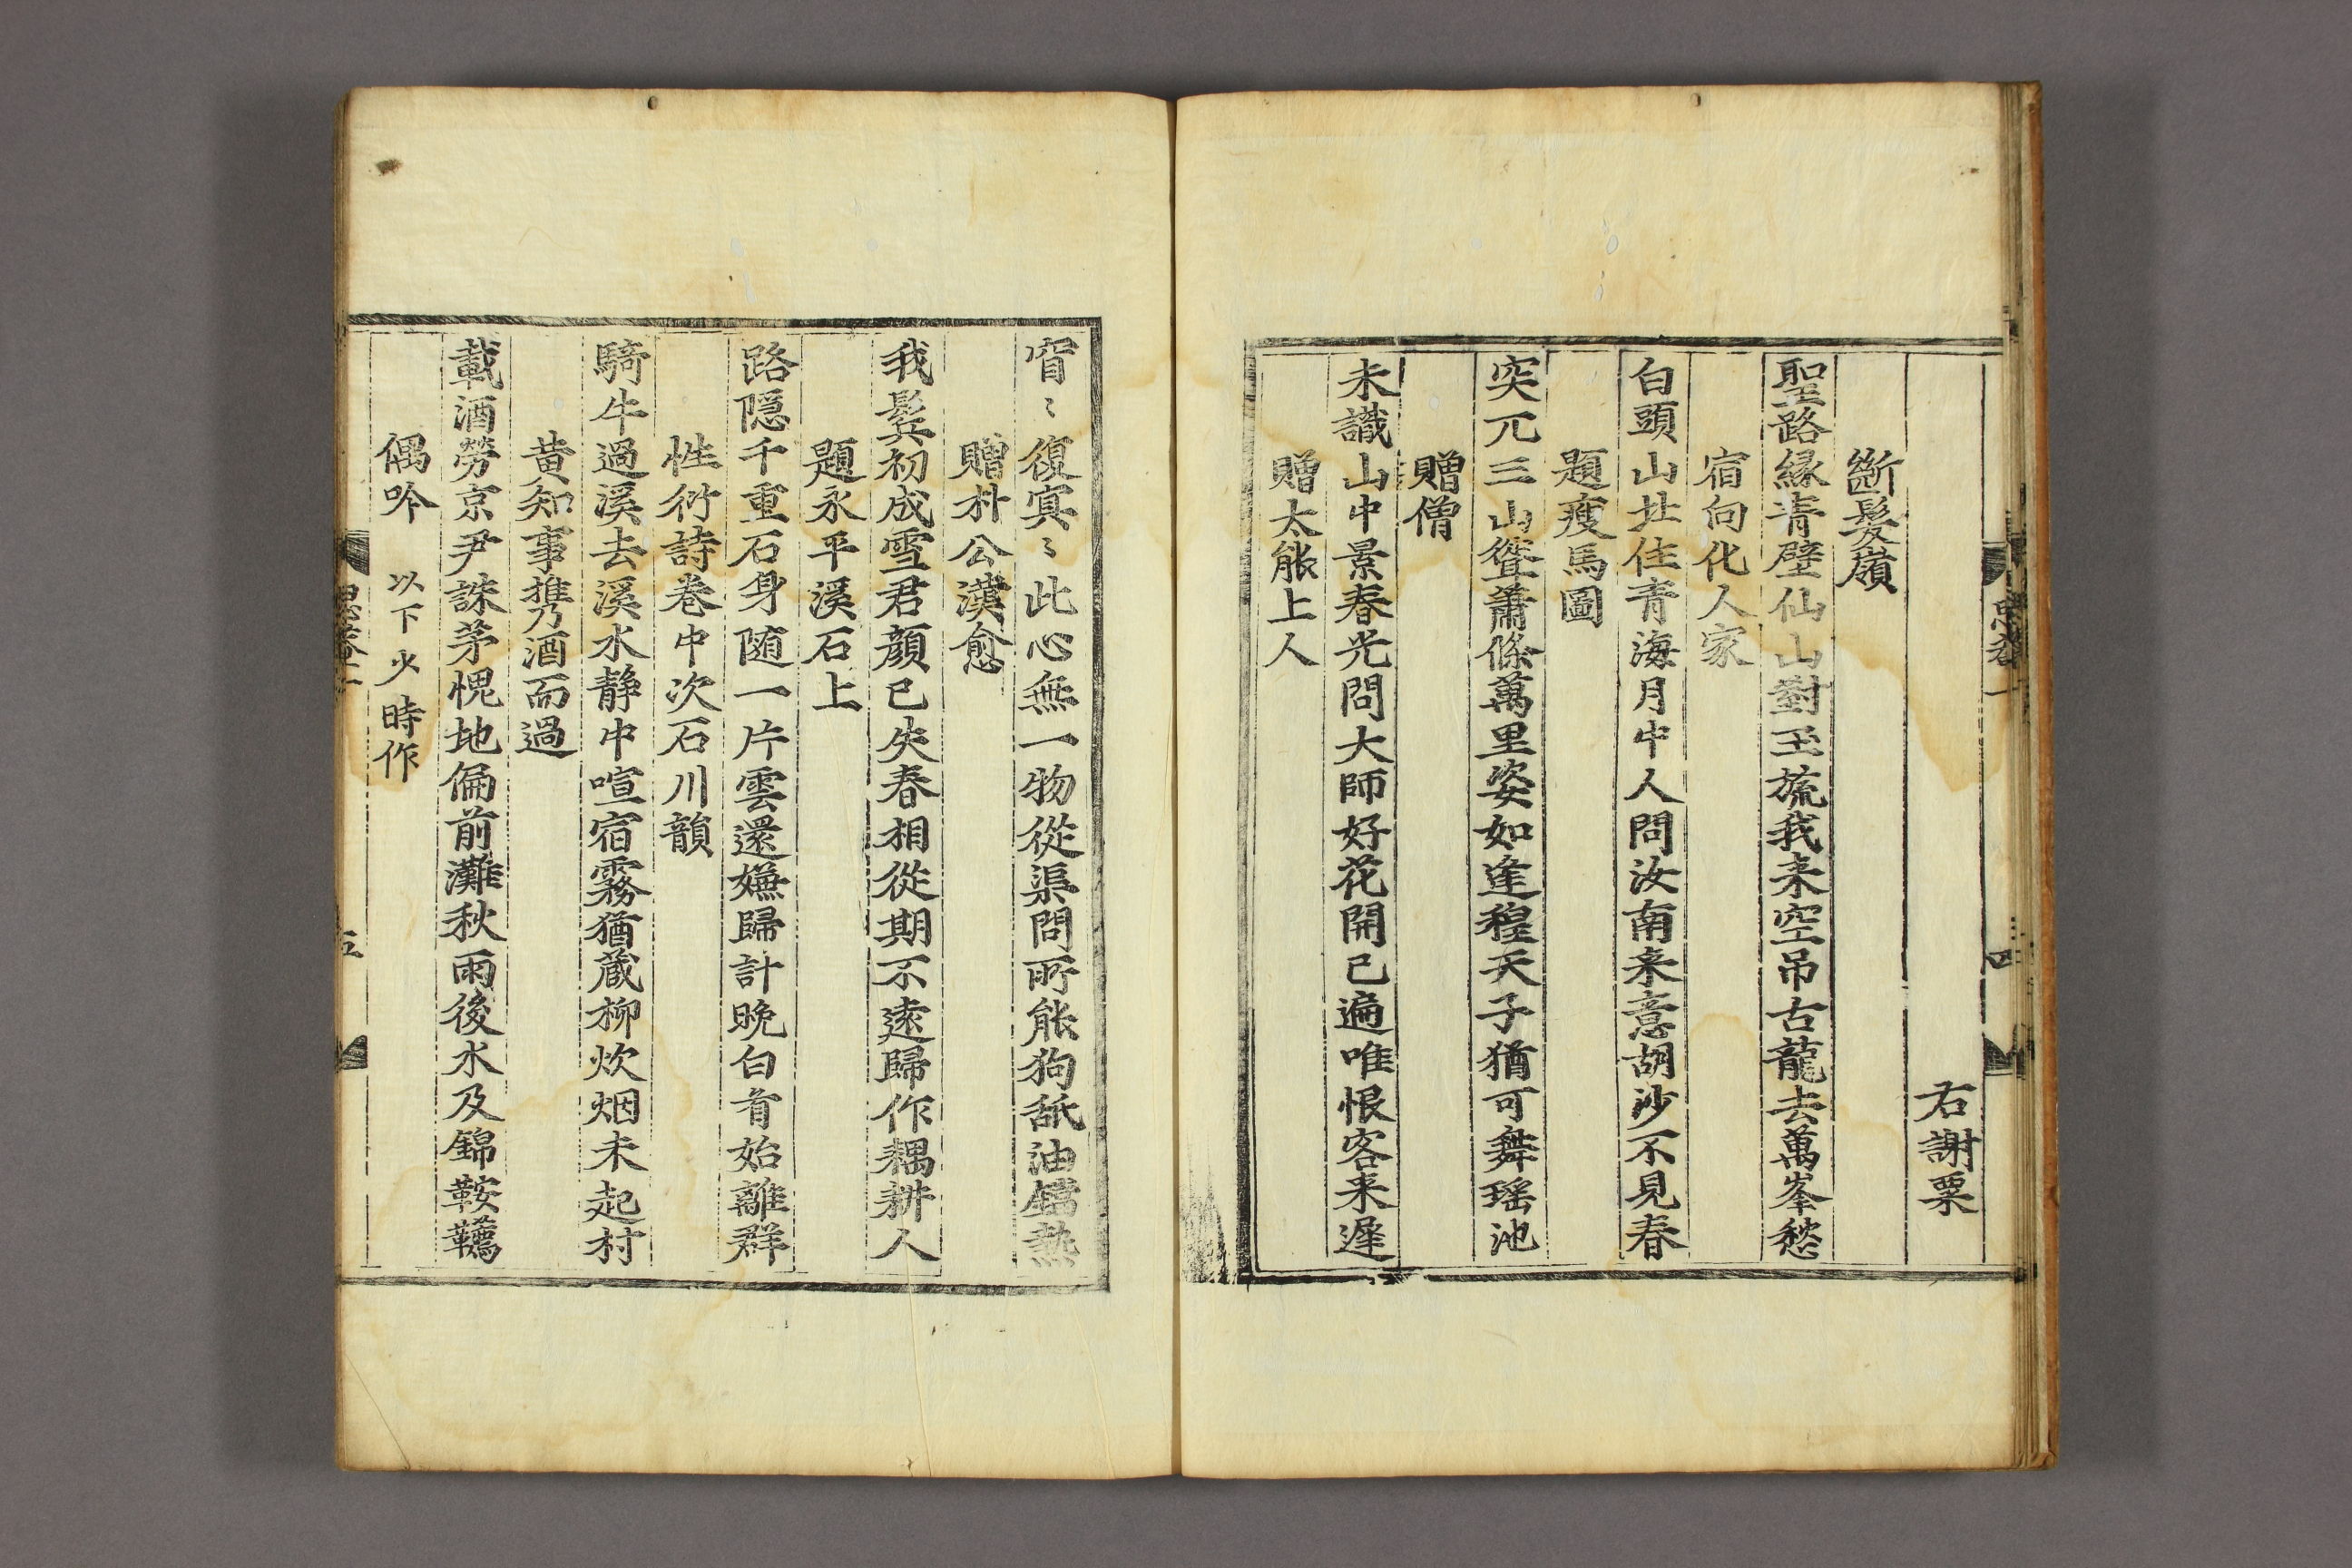 右謝粟
斷髮嶺
聖路縁青壁仙山對玉旒我来空吊古龍去萬峯愁
宿向化人家
白頭山北住青海月中人問汝南来意胡沙不見春
題瘦馬圖
突兀三山聳蕭條萬里姿如逢穆天子猶可舞瑶池
贈僧
未識山中景春光問大師好花開已遍唯恨客来遲
贈太能上人
窅〻復㝠〻此心無一物從渠問所能狗舐油鐺熱
贈朴公漢愈
我鬂初成雪君顔已失春相從期不逺歸作耦耕人
題永平溪石上
路隠千重石身随一片雲還嫌歸計晩白首始離群
性衍詩巻中次石川韻
騎牛過溪去溪水静中喧宿霧猶蔵柳炊烟未起村
黄知事携酒而過
載酒勞京尹誅茅愧地偏前灘秋雨後水及錦鞍韉
偶吟 以下少時作
四
五